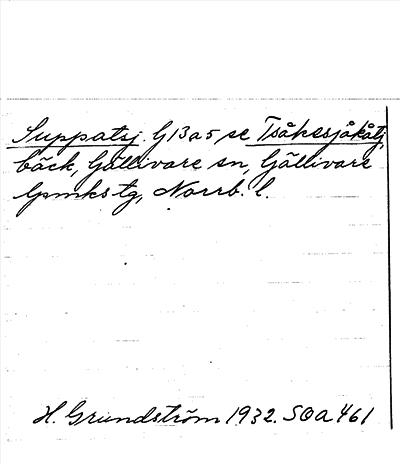 Suppatsj. G13a5 se Tsåkesjåkåtj,
bäck, Gällivare sn, Gällivare
lpmks tg, Norrb. l.
H. Grundström 1932. SOA 461